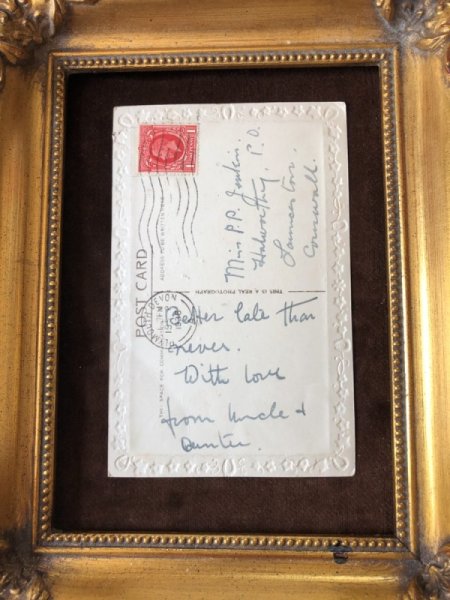 POST CARD
THE SPACE FOR
ADDRESS TO BE WRITTEN HERE
THIS IS A REAL PHOTOGRAPH
1 1
PLYMOUTH DEVON
Miss P.P. Jenkin.
P.O.
Launceston.
Cornwall.
Better late than
never.
With love
from Uncle &
Auntie.